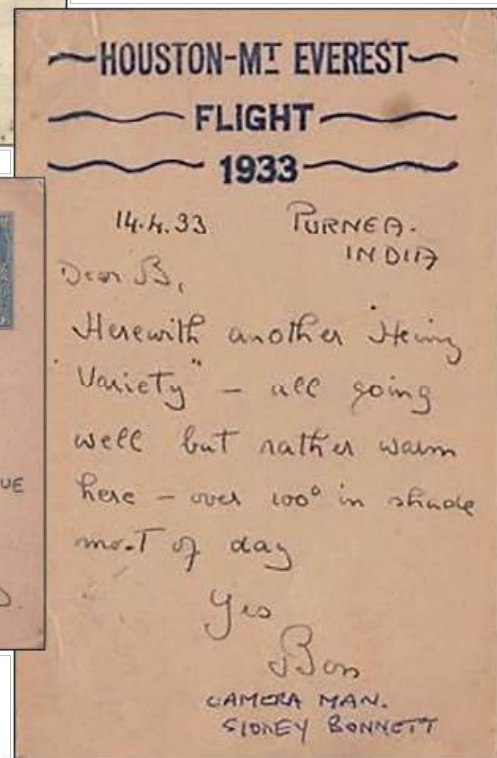 HOUSTON-MT EVEREST
FLIGHT
1933
14.4.33 PURNEA.
INDIA
Dear B,
Herewith another "Heinz
Variety" – all going
well but rather warm
here – over 100° in shade
most of day
Yrs
Bon
CAMERA MAN.
SIDNEY BONNETT
UE